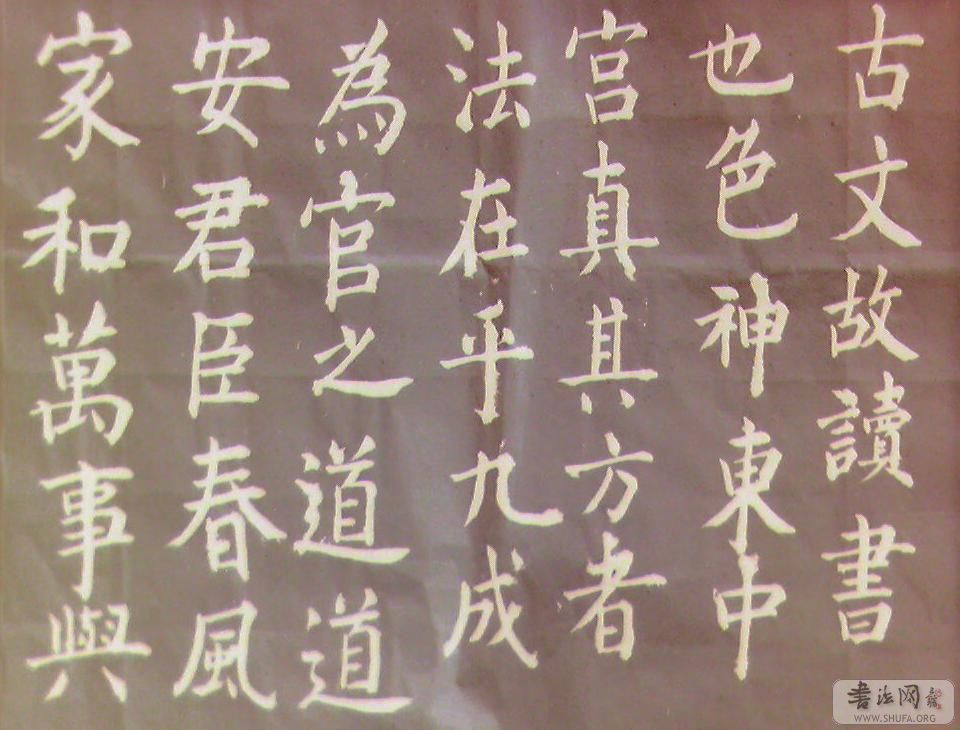 古文故讀書
也色神東中
宫真其方者
法在平九成
為官之道道
安君臣春風
家和萬事興
書法网
WWW.SHUFA.ORG